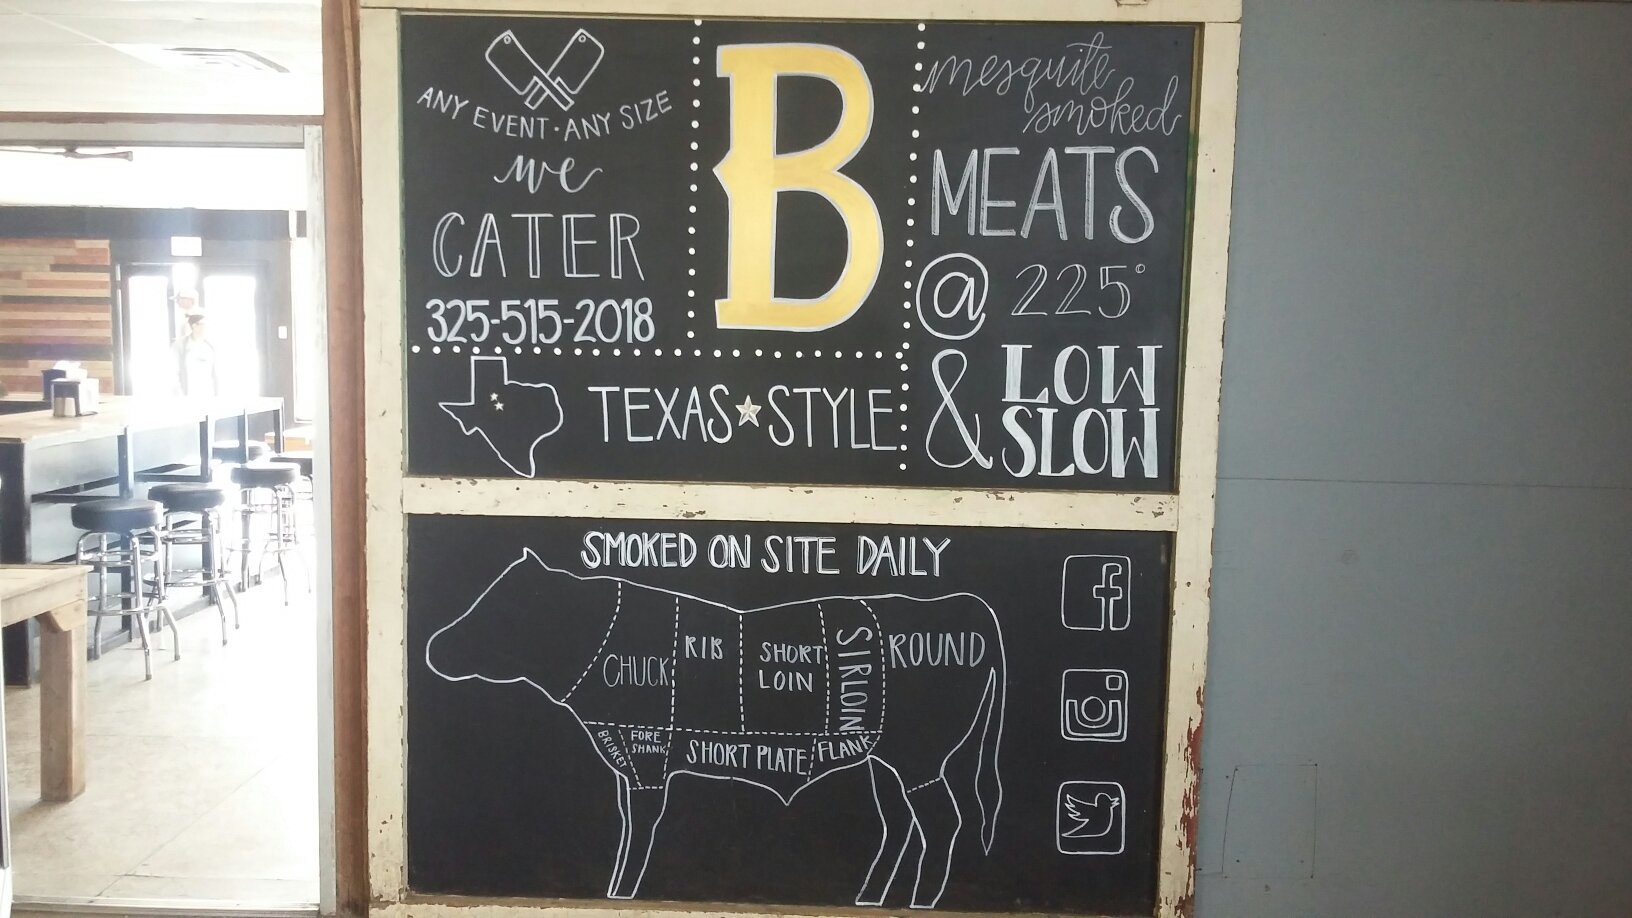 ANY EVENT · ANY SIZE
we
CATER
325-515-2018
B
mesquite
smoked
MEATS
@ 225°
& LOW
SLOW
TEXAS STYLE
SMOKED ON SITE DAILY
CHUCK
RIB
SHORT
LOIN
SIRLOIN
ROUND
BRISKET
FORE
SHANK
SHORT PLATE
FLANK
f